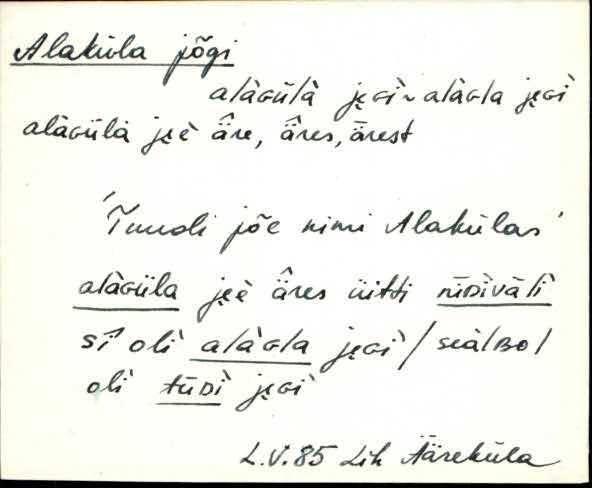 Alaküla jõgi
alàɢülà je̬ɢì ~ alàɢla je̬ɢì
alàɢülä je̬è ä̂re, ä̂res, ä̂rest
'Tuudi jõe nimi Alakülas'
alàɢüla je̬è ä̂res üitti nīᴅìväli
sî̄ olì alàɢla je̬ɢì / seàlʙol
olì tūᴅì je̬ɢì
L.V.85 Lih Ääreküla